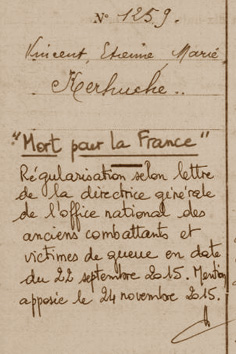 N° 1259.
Vincent, Etienne Marie
Kerhuche..
"Mort pour la France"
Régularisation selon lettre
de la directrice générale
de l'office national des
anciens combattants et
victimes de guerre en date
du 22 septembre 2015. Mention
apposée le 24 novembre 2015.